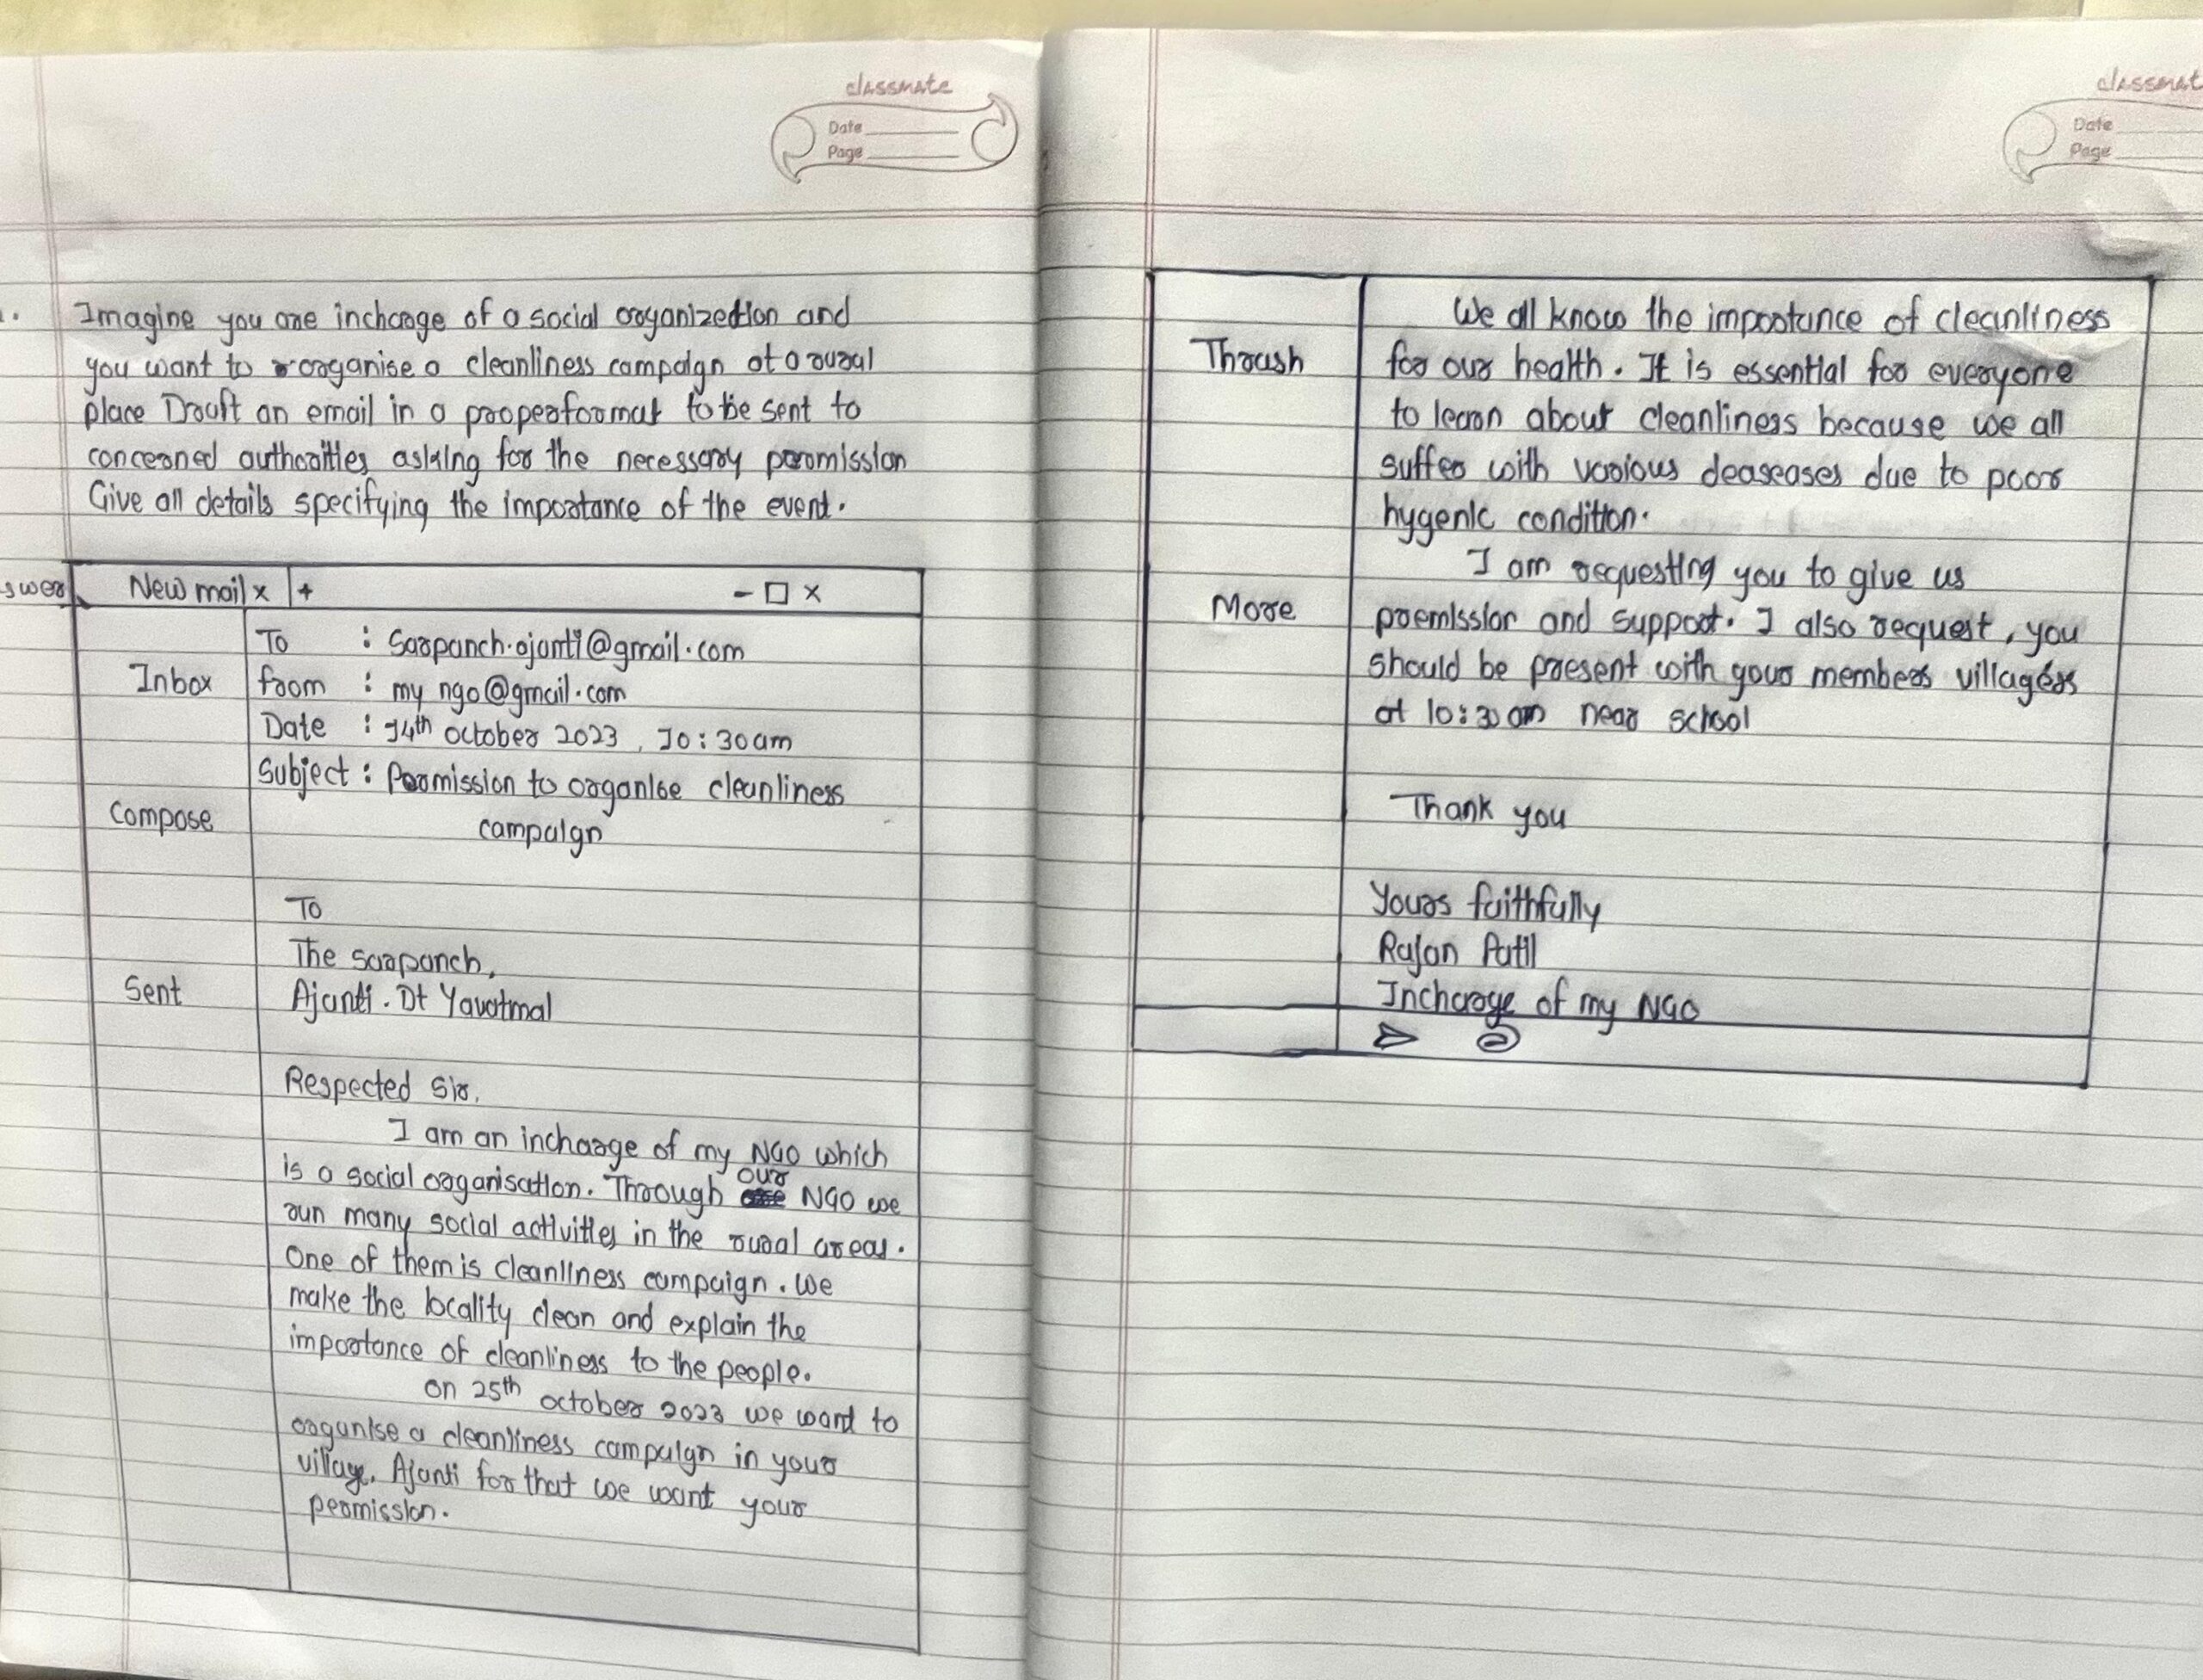 classmate
Date
Page
Imagine you are incharge of a social organization and
you want to organise a cleanliness campaign at a rural
place Draft an email in a proper format to be sent to
concerned authorities asking for the necessary permission
Give all details specifying the importance of the event.
New mail x | + - □ x
To : Sarpanch.ajanti@gmail.com
Inbox
from : my ngo@gmail.com
Date : 14th october 2023, 10:30am
Subject : Permission to organise cleanliness
campaign
Compose
To
The sarpanch,
Sent
Ajanti. Dt Yavatmal
Respected Sir,
I am an incharge of my NGO which
is a social organisation. Through our NGO we
run many social activities in the rural areas.
One of them is cleanliness campaign. We
make the locality clean and explain the
importance of cleanliness to the people.
On 25th october 2023 we want to
organise a cleanliness campaign in your
village, Ajanti for that we want your
permission.
classmat
Date
Page
We all know the importance of cleanliness
Thrash
for our health. It is essential for everyone
to learn about cleanliness because we all
suffer with various deaseases due to poor
hygenic condition.
I am requesting you to give us
More
premission and support. I also request, you
should be present with your members villagers
at 10:30 am near school
Thank you
Yours faithfully
Rajan Patil
Incharge of my NGO